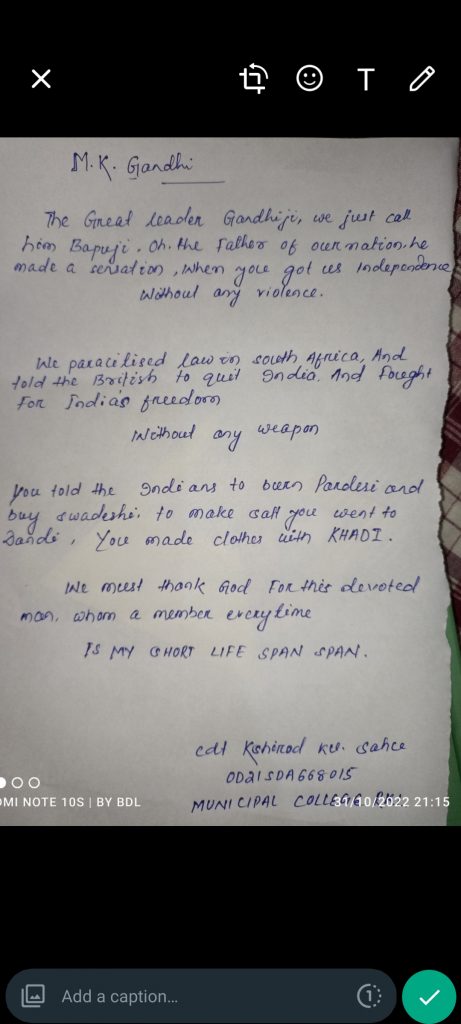 T
M.K. Gandhi
The Great leader Gandhiji, we just call
him Bapuji. Oh. the Father of our nation. he
made a sensation, When you got us Independence
Without any violence.
We paracilised law in south Africa, And
told the British to quit India. And Fought
For India's freedom
Without any weapon
You told the Indians to burn Pardesi and
buy swadeshi. to make salt you went to
Dandi, You made clothes with KHADI.
We must thank God For this devoted
man, whom a member everytime
IS MY SHORT LIFE SPAN SPAN.
cdt Kshirod ku. Sahoo
OD21SDA668015
MUNICIPAL COLLEGE
OMI NOTE 10S | BY BDL
31/10/2022 21:15
Add a caption...
1